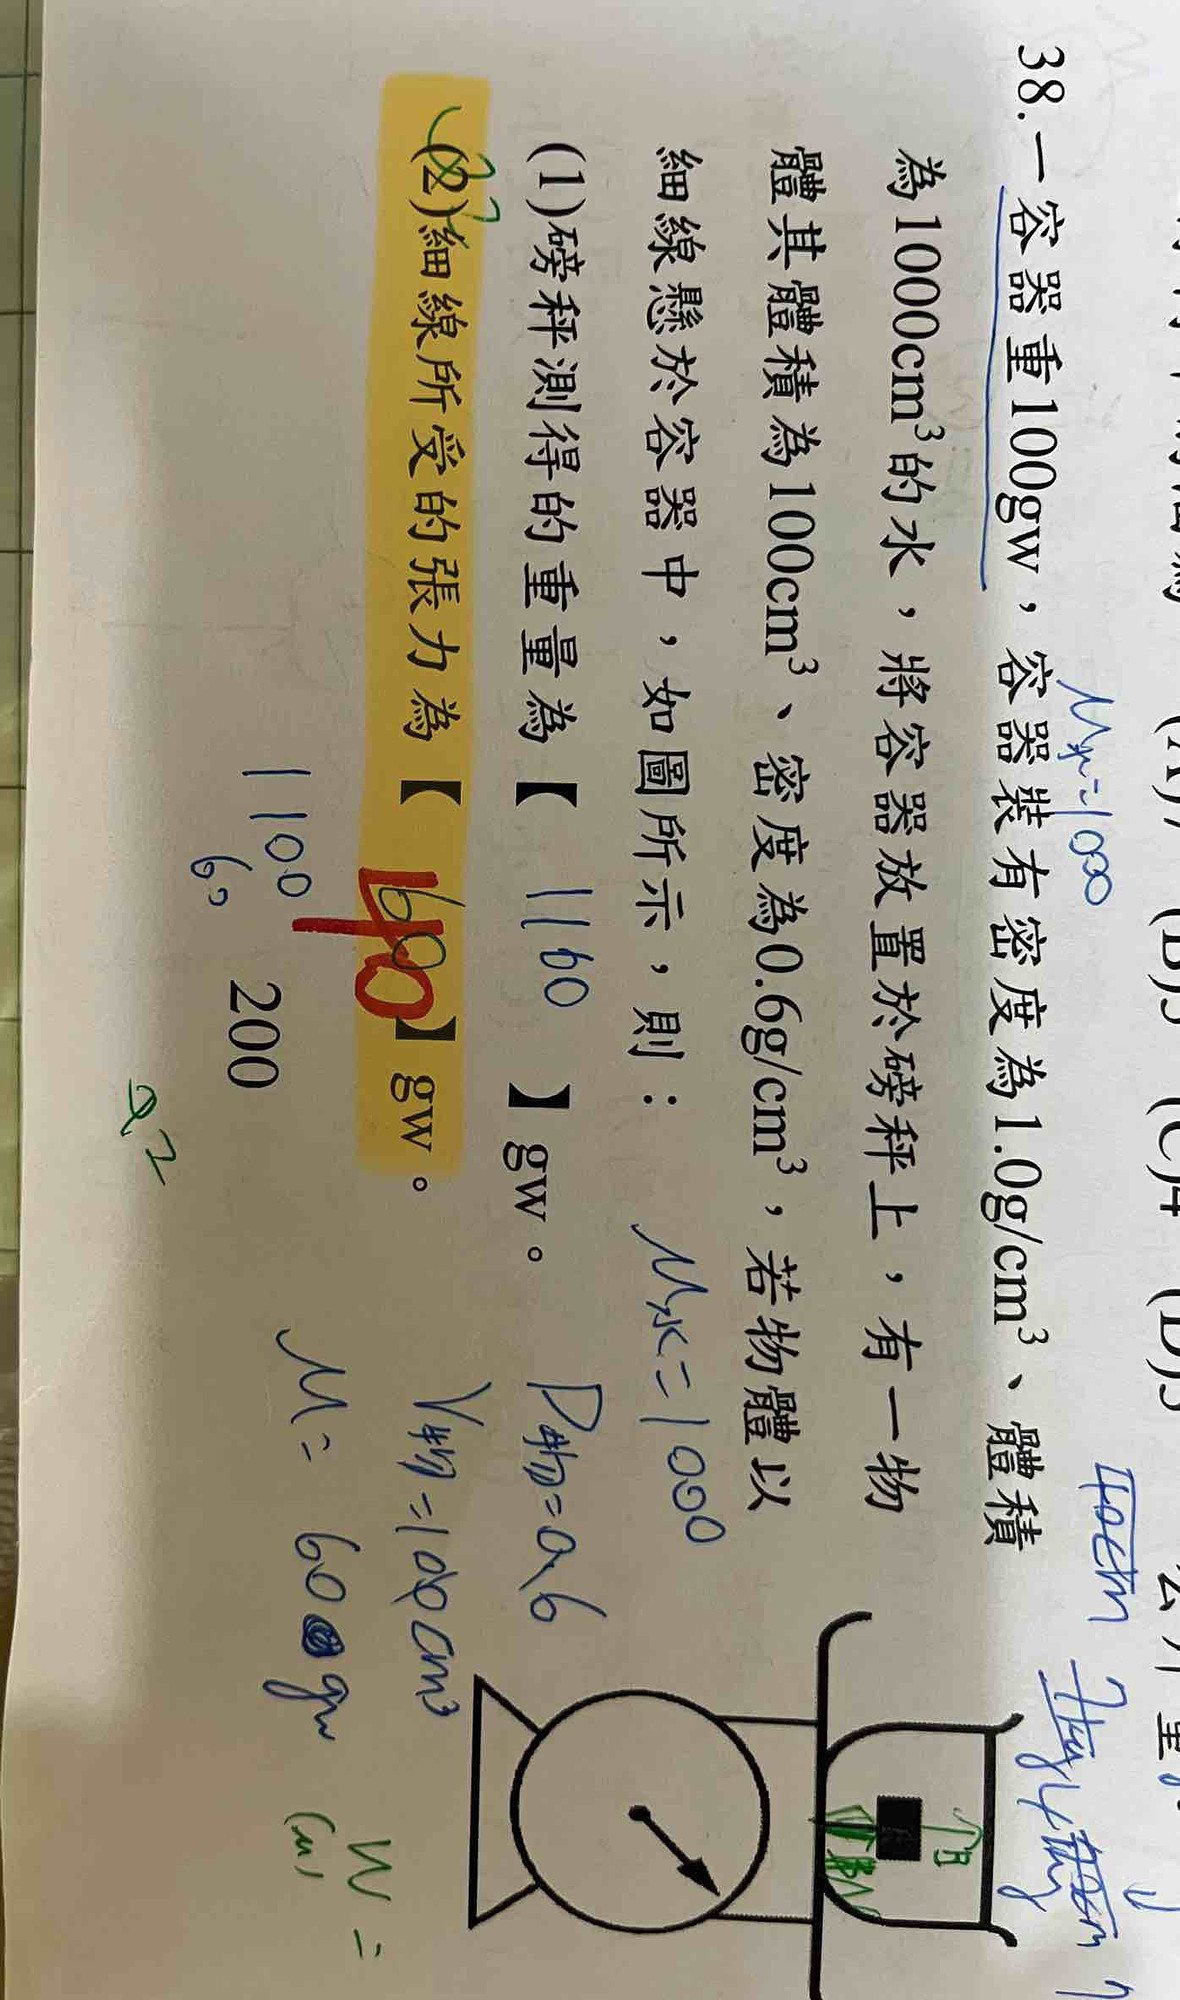 38.一容器重100gw，容器裝有密度為1.0g/cm³、體積
為1000cm³的水，將容器放置於磅秤上，有一物
體其體積為100cm³、密度為0.6g/cm³，若物體以
細線懸於容器中，如圖所示，則：
(1)磅秤測得的重量為【 1160 】gw。
(2)細線所受的張力為【 40 】gw。
M水=1000
M水=1000
D物=0.6
V物=100cm³
M= 60 gw
W =
1100
60
200
B